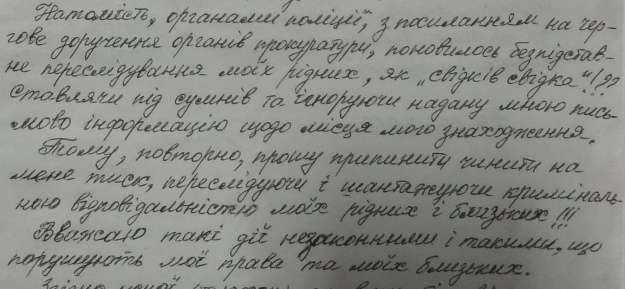 Натомість, органами поліції, з посиланням на чер-
гове доручення органів прокуратури, поновилось безпідстав-
не переслідування моїх рідних, як „свідків свідка"!??
ставлячи під сумнів та ігноруючи надану мною пись-
мово інформацію щодо місця мого знаходження.
Тому, повторно, прошу припинити чинити на
мене тиск, переслідуючи і шантажуючи криміналь-
ною відповідальністю моїх рідних і близьких!!!
Вважаю такі дії незаконними і такими, що
порушують мої права та моїх близьких.